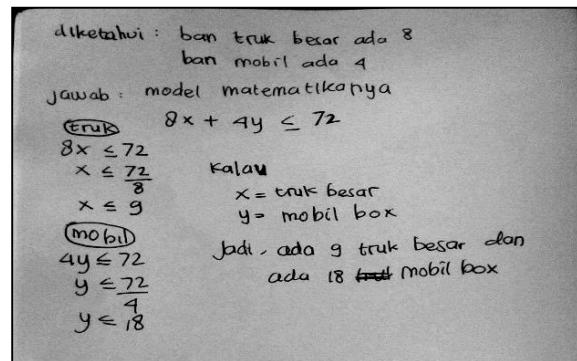 diketahui : ban truk besar ada 8
ban mobil ada 4
Jawab : model matematikanya
8x + 4y ≤ 72
truk
8x ≤ 72
x ≤ 72/8
x ≤ 9
mobil
4y ≤ 72
y ≤ 72/4
y ≤ 18
Kalau
x = truk besar
y = mobil box
Jadi, ada 9 truk besar dan
ada 18 mobil box